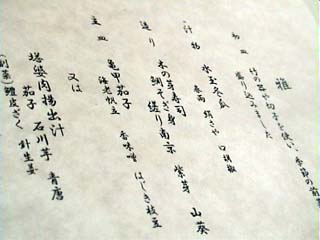 雅
初皿
竹の器や切子を使い、季節の前菜
盛り込みました
汁物
水玉冬瓜
巻両 口胡椒
造り
木の芽寿司 紫芽 山葵
鯛そぎ身 縒り南京
主皿
亀甲茄子 香味噌 はじき枝豆
海老帆立
又は
塔婆肉揚出汁 石川芋 青唐
茄子 針生姜
(副菜) 鱧皮ざく